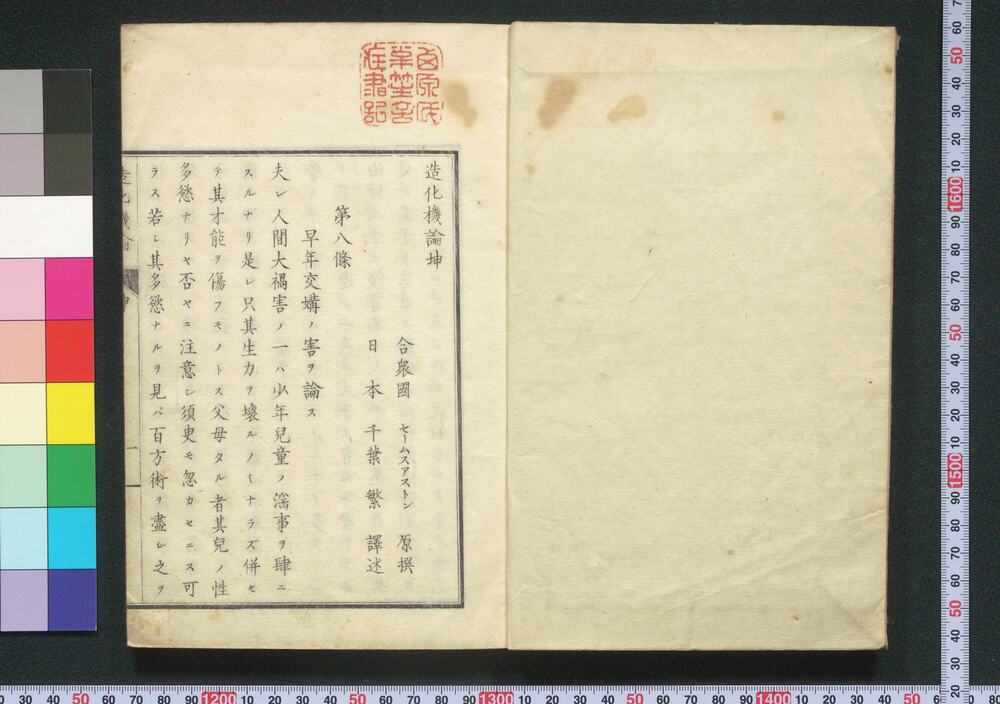 造化機論坤
合衆國 セームスアストン 原撰
日本 千葉繁 譯述
第八條
早年交媾ノ害ヲ論ス
夫レ人間大禍害ノ一ハ少年兒童ノ滛事ヲ肆ニ
スルナリ是レ只其生力ヲ壊ルノミナラズ併セ
テ其才能ヲ傷フモノトス父母タル者其兒ノ性
多慾ナリヤ否ヤニ注意シ須臾モ忽カセニス可
ラス若シ其多慾ナルヲ見バ百方術ヲ盡シ之ヲ
造化機論 坤 一